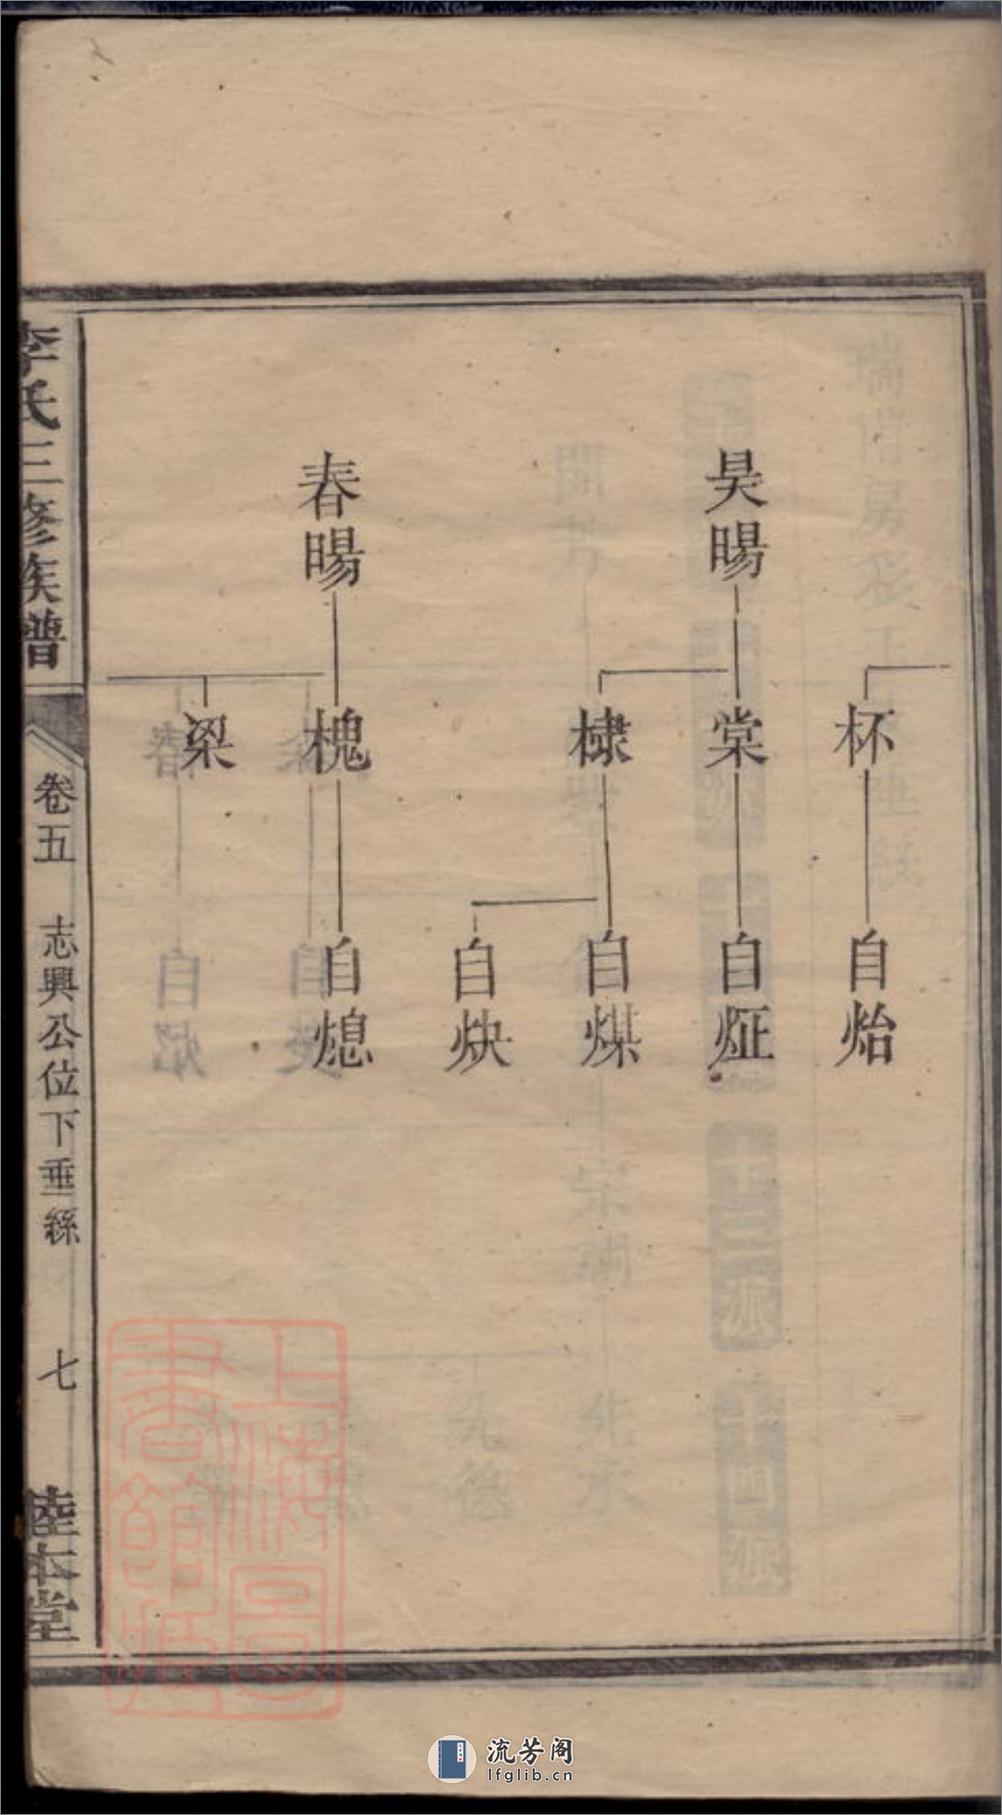 杯
自炲
昊暘
棠
自炡
棣
自煤
自炔
春暘
槐
自熄
梁
李氏三修族譜
卷五
志興公位下垂絲
七
陸本堂
上海圖
書館藏
流芳阁
lfglib.cn